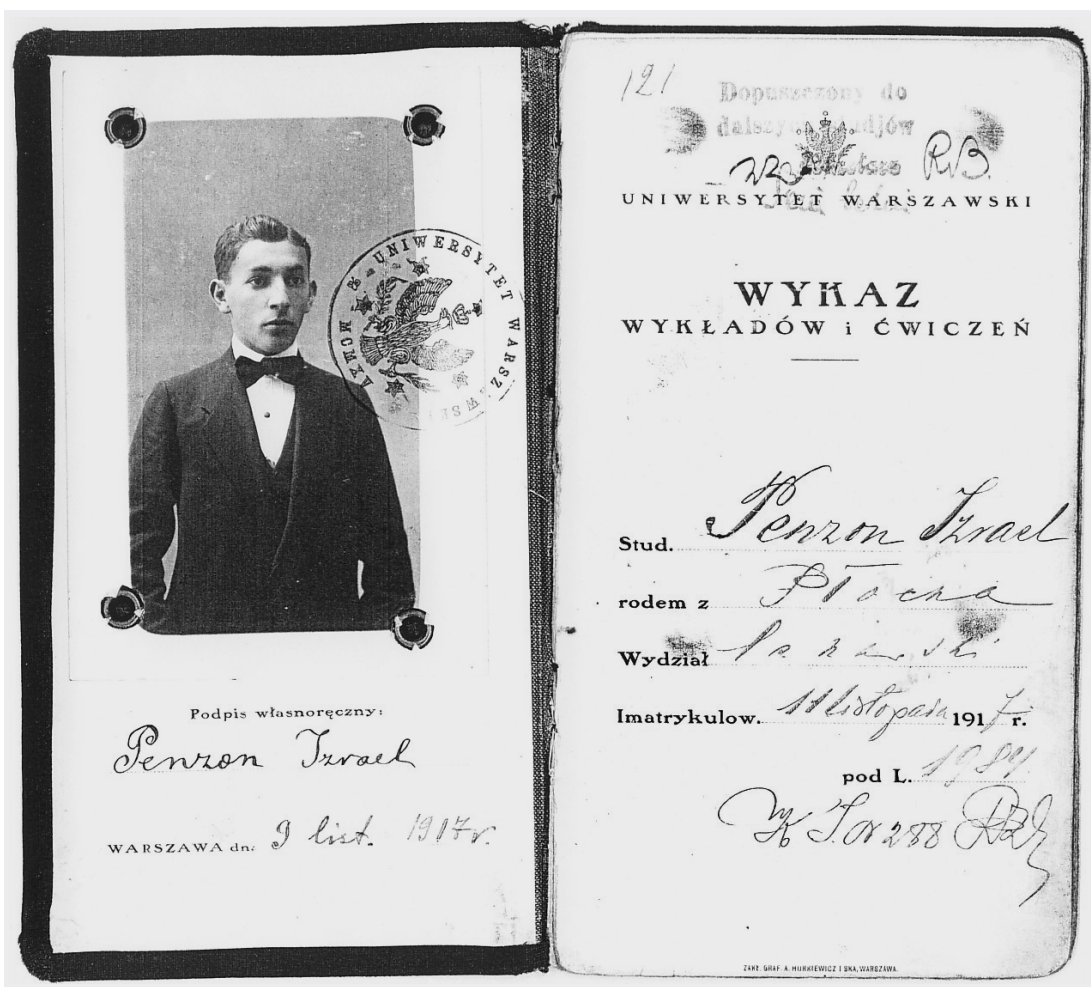 UNIWERSYTET WARSZAWSKI
Podpis własnoręczny:
Penzon Izrael
WARSZAWA dn. 9 list. 1917 r.
121
Dopuszczony do
RB.
UNIWERSYTET WARSZAWSKI
WYKAZ
WYKŁADÓW i ĆWICZEŃ
Stud. Penzon Izrael
rodem z Płocka
Wydział
Imatrykulow. 11 listopada 1917 r.
pod L. 1984
288
ZAKŁ. GRAF. A. HURKIEWICZ I SKA, WARSZAWA.